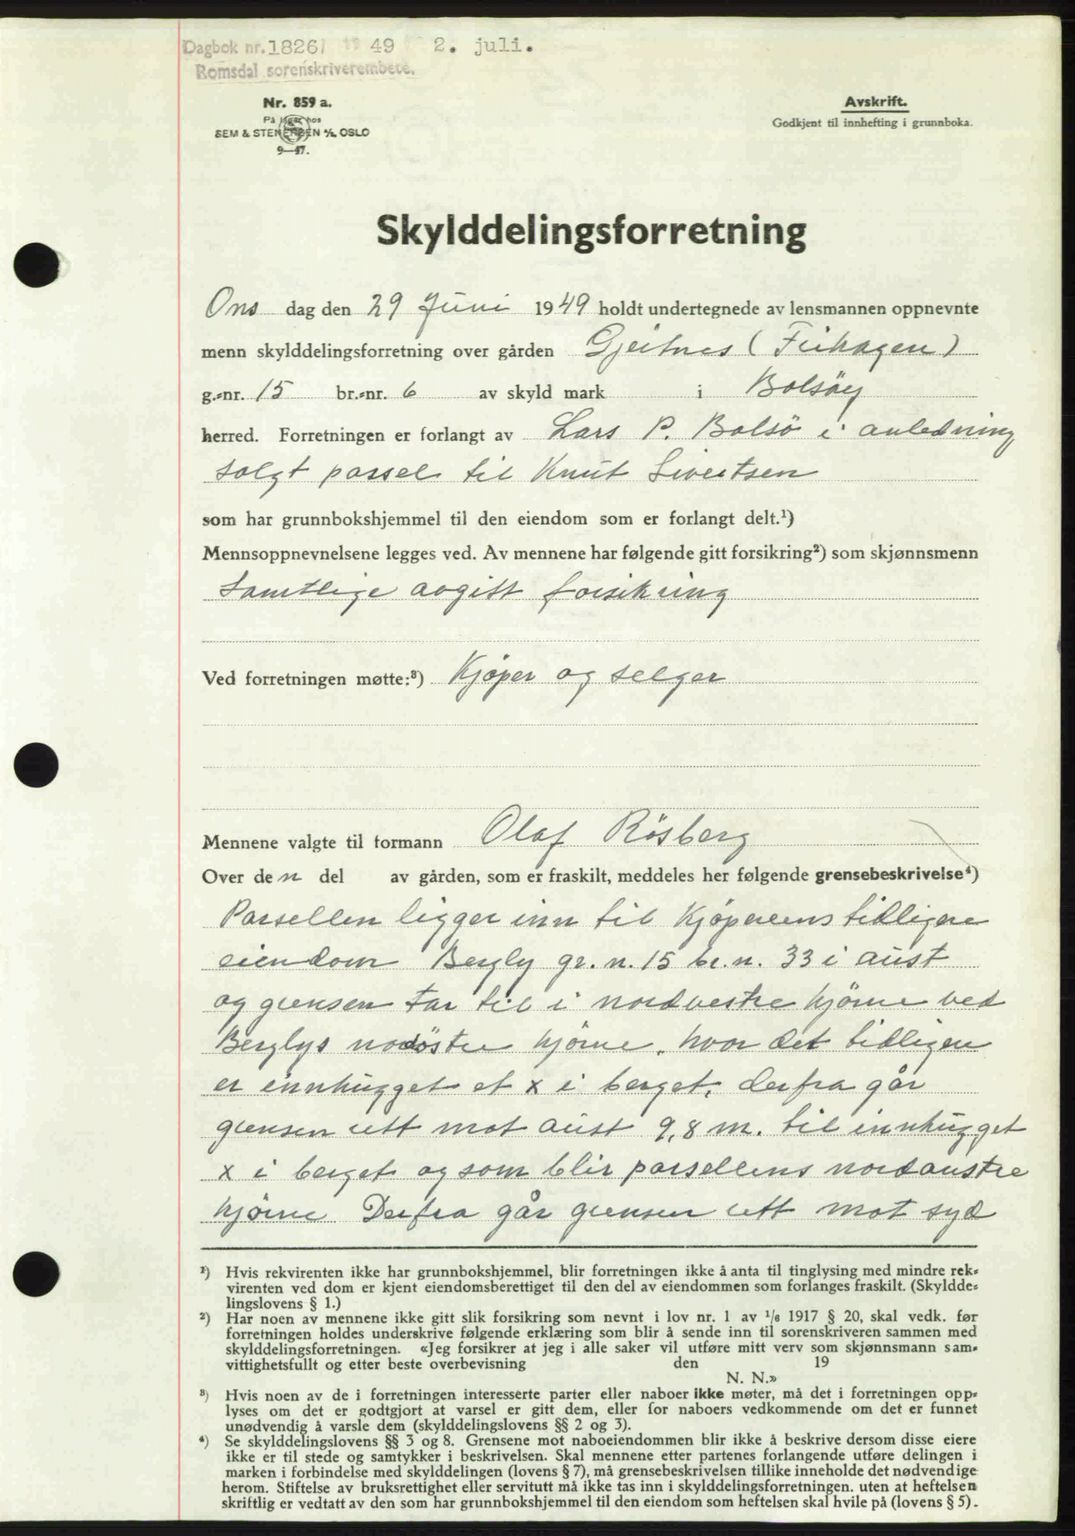 Dagbok nr. 1826/ 1949 2. juli.
Romsdal sorenskriverembete.
Nr. 859 a.
På lager hos
SEM & STENERSEN A/S, OSLO
9—47.
Avskrift.
Godkjent til innhefting i grunnboka.
Skylddelingsforretning
Ons dag den 29 Juni 1949 holdt undertegnede av lensmannen oppnevnte
menn skylddelingsforretning over gården Gjeitnes (Feihagen)
g.-nr. 15 br.-nr. 6 av skyld mark i Bolsöy
herred. Forretningen er forlangt av Lars P. Bolsö i anledning
solgt parsel til Knut Sivertsen
som har grunnbokshjemmel til den eiendom som er forlangt delt.¹)
Mennsoppnevnelsene legges ved. Av mennene har følgende gitt forsikring²) som skjønnsmenn
Samtlige avgitt forsikring
Ved forretningen møtte:³) Kjöper og selger
Mennene valgte til formann Olaf Rösberg
Over den del av gården, som er fraskilt, meddeles her følgende grensebeskrivelse⁴)
Parsellen ligger inn til Kjöperens tidligere
eiendom Bergly gr. n. 15 br. n. 33 i aust
og grensen tar til i nordvestre hjörne ved
Berglys nordöstre hjörne, hvor det tidligere
er innhugget et x i berget, derfra går
grensen rett mot aust 9,8 m. til innhugget
x i berget og som blir parsellens nordaustre
hjörne Derfra går grensen rett mot syd
¹) Hvis rekvirenten ikke har grunnbokshjemmel, blir forretningen ikke å anta til tinglysing med mindre rek-
virenten ved dom er kjent eiendomsberettiget til den del av eiendommen som forlanges fraskilt. (Skyldde-
lingslovens § 1.)
²) Har noen av mennene ikke gitt slik forsikring som nevnt i lov nr. 1 av 1/6 1917 § 20, skal vedk. før
forretningen holdes underskrive følgende erklæring som blir å sende inn til sorenskriveren sammen med
skylddelingsforretningen. «Jeg forsikrer at jeg i alle saker vil utføre mitt verv som skjønnsmann sam-
vittighetsfullt og etter beste overbevisning den 19
N. N.»
³) Hvis noen av de i forretningen interesserte parter eller naboer ikke møter, må det i forretningen opp-
lyses om det er godtgjort at varsel er gitt dem, eller for naboers vedkommende om det er funnet
unødvendig å varsle dem (skylddelingslovens §§ 2 og 3).
⁴) Se skylddelingslovens §§ 3 og 8. Grensene mot naboeiendommen blir ikke å beskrive dersom disse eiere
ikke er til stede og samtykker i beskrivelsen. Skal mennene etter partenes forlangende utføre delingen i
marken i forbindelse med skylddelingen (lovens § 7), må grensebeskrivelsen tillike inneholde det nødvendige
herom. Stiftelse av bruksrettighet eller servitutt må ikke tas inn i skylddelingsforretningen, uten at heftelsen
skriftlig er vedtatt av den som har grunnbokshjemmel til den eiendom som heftelsen skal hvile på (lovens § 5).